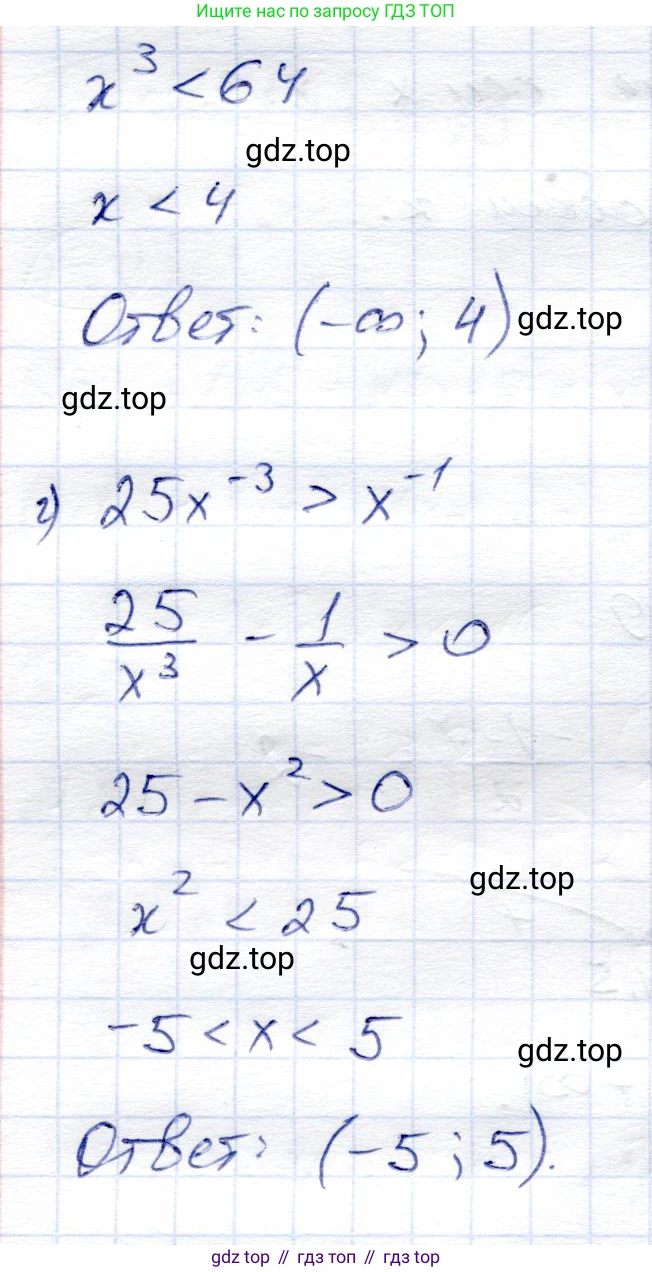 Ищите нас по запросу ГДЗ ТОП
x³ < 64
gdz.top
x < 4
Ответ: (-∞; 4) gdz.top
gdz.top
г) 25x⁻³ > x⁻¹
25/x³ - 1/x > 0
25 - x² > 0
gdz.top
x² < 25
gdz.top
-5 < x < 5
gdz.top
Ответ: (-5; 5).
gdz top // гдз топ // gdz.top